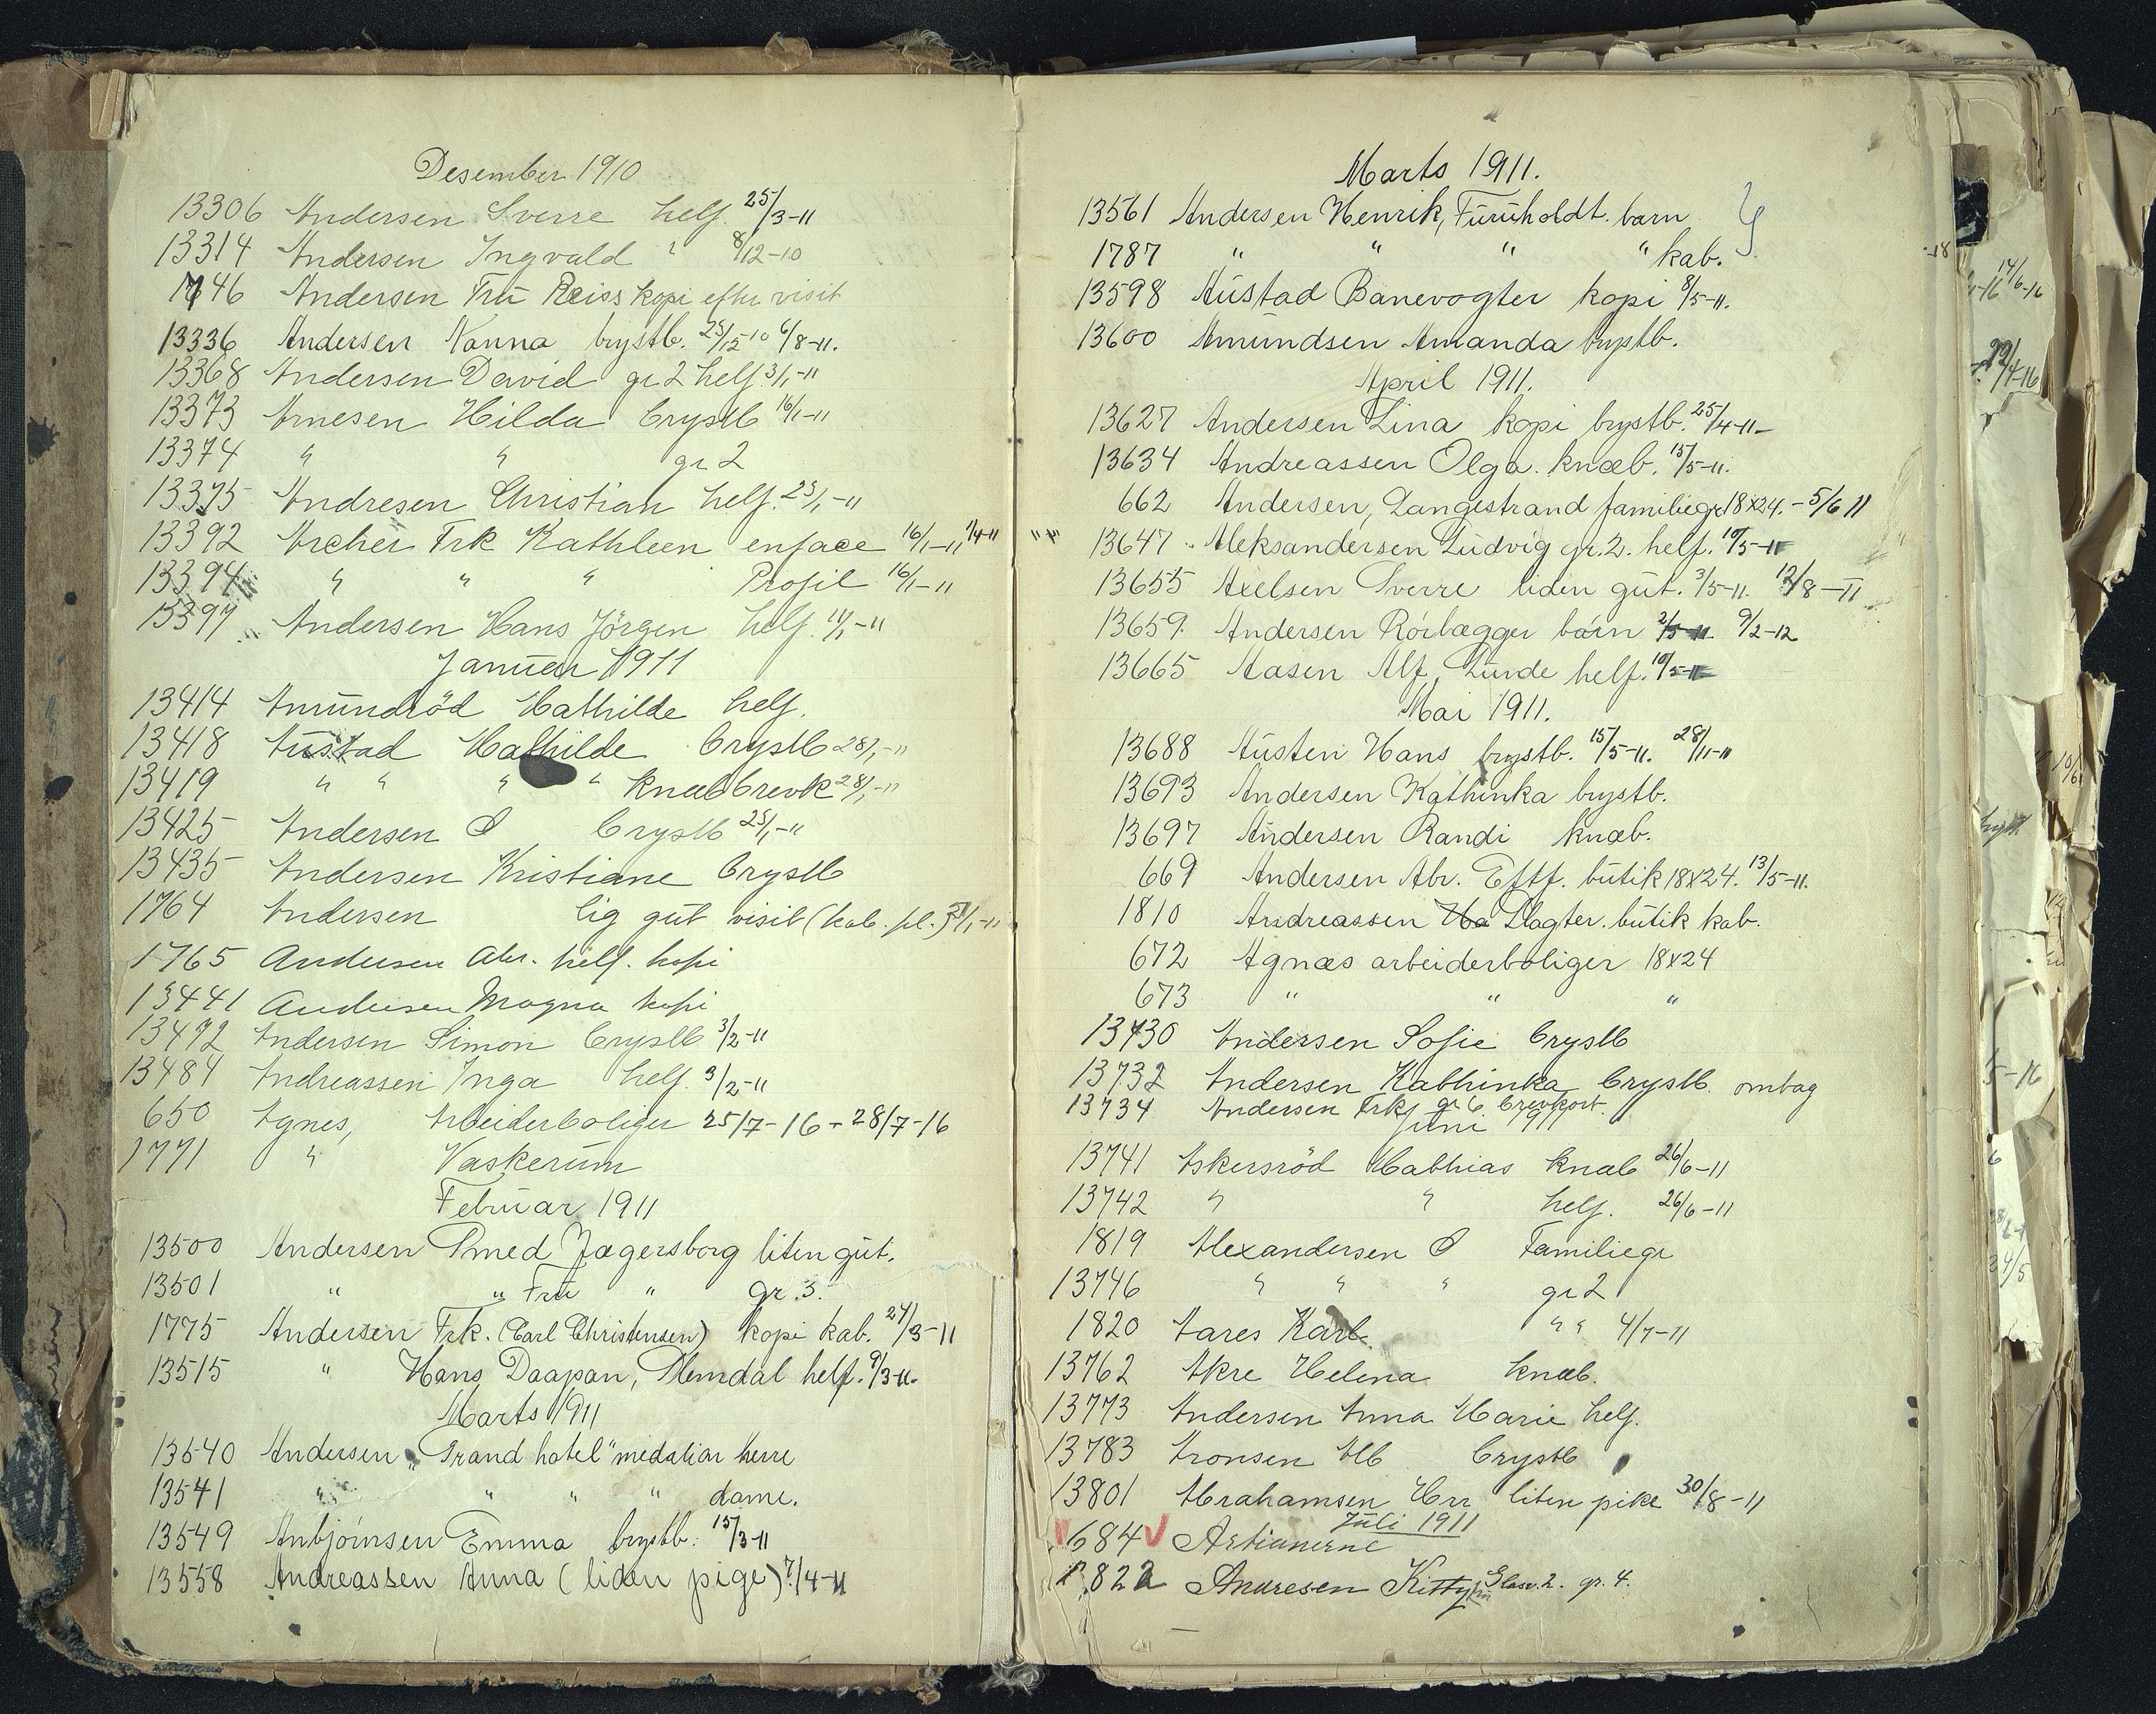 Desember 1910
13306 Andersen Sverre helf. 25/3-11
13314 Andersen Ingvald " 8/12-10
1746 Andersen Fru Reiss kopi efter visit
13336 Andersen Nanna brystb. 25/12-10 6/8-11.
13368 Andersen David gr 2 helf. 3/1-11
13373 Arnesen Hilda brystb 16/1-11
13374 " " gr 2
13375 Andresen Christian helf. 23/1-11
13392 Archer Frk Kathleen enface 16/1-11, 1/4-11
13394 " " " Profil 16/1-11
13397 Andersen Hans Jörgen helf. 11/1-11
Januar 1911
13414 Amundröd Mathilde helf.
13418 Austad Mathilde brystb 28/1-11
13419 " " " " knæb brevk 28/1-11
13425 Andersen O brystb 25/1-11
13435 Andersen Kristiane brystb
1764 Andersen lig gut visit (kab. pl.) /1-11
1765 Andersen Abr. helf. kopi
13441 Andersen Magna kopi
13472 Andersen Simon brystb 3/2-11
13484 Andreassen Inga helf. 9/2-11
650 Agnes, Arbeiderboliger 25/7-16 - 28/7-16
1771 " Vaskerum
Februar 1911
13500 Andersen Smed Jægersborg liten gut.
13501 " " Fru " gr. 3.
1775 Andersen Frk. (Carl Christensen) kopi kab. 27/3-11
13515 " Hans Daapan, Slemdal helf. 9/3-11.
Marts 1911
13540 Andersen "Grand hotel" medalion herre
13541 " " " " dame.
13549 Anbjörnsen Emma brystb. 15/3-11
13558 Andreassen Anna (liden pige) 7/4-11
Marts 1911.
13561 Andersen Henrik, Furuholdt. barn
1787 " " " " kab.
13598 Austad Banevogter kopi 8/5-11.
13600 Amundsen Amanda brystb.
April 1911.
13627 Andersen Lina kopi brystb. 25/4-11-
13634 Andreassen Olga. knæb. 15/5-11.
662 Andersen, Langestrand familiegr 18x24. - 5/6 11
13647 Aleksandersen Ludvig gr. 2. helf. 10/5-11
13655 Axelsen Sverre liden gut. 3/5-11. 12/8-11
13659. Andersen Rörlægger barn 2/5-11. 9/2-12
13665 Aasen Alf, Lunde helf. 10/5-11
Mai 1911.
13688 Austen Hans brystb. 15/5-11. 28/11-11
13693 Andersen Kathinka brystb.
13697 Andersen Randi knæb.
669 Andersen Abr. Eftf. butik 18x24. 13/5-11.
1810 Andreassen Ha Slagter. butik kab.
672 Agnæs arbeiderboliger 18x24
673 " " "
13730 Andersen Sofie brystb
13732 Andersen Kathinka brystb. omtag
13734 Andersen Frk gr 6. brevkort.
Juni 1911
13741 Askersröd Mathias knæb 26/6-11
13742 " " helf. 26/6-11
1819 Alexandersen O Familiegr
13746 " " " gr 2
1820 Aares Karl " " 4/7-11
13762 Akre Helena knæb.
13773 Andersen Anna Marie helf.
13783 Aronsen Alb brystb
13801 Abrahamsen Hrr liten pike 30/8-11
Juli 1911
684 Artianerne
1822 Andresen Kitty Glasv. 2. gr. 4.